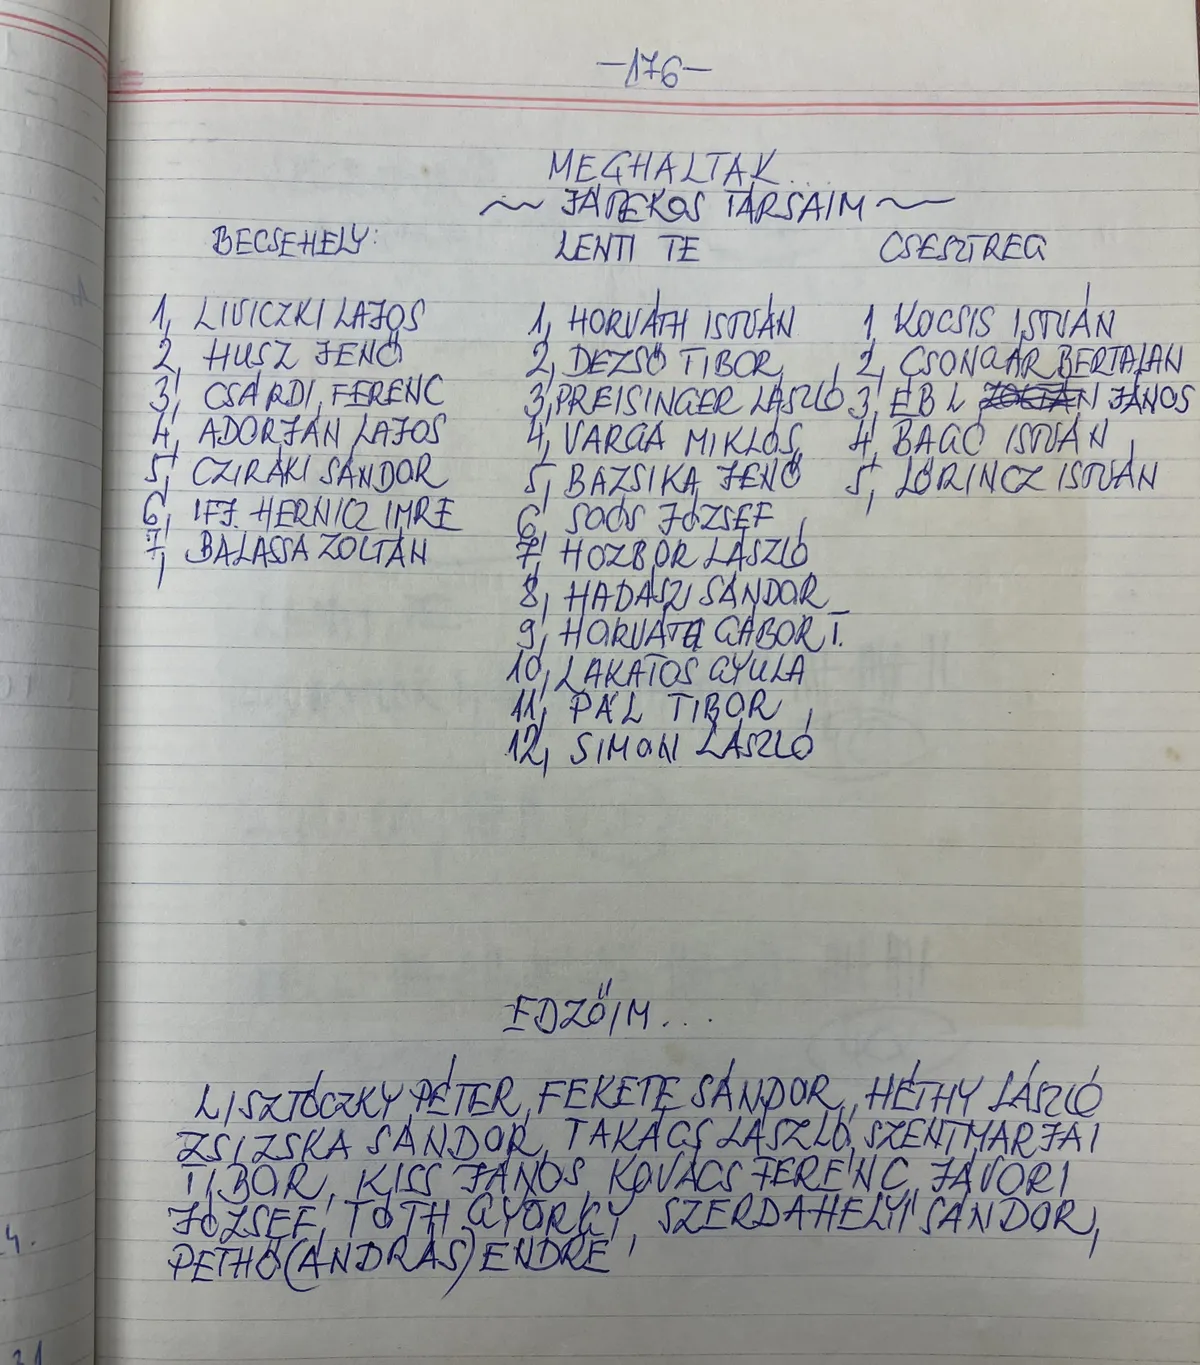 –176–
MEGHALTAK...
JÁTÉKOS TÁRSAIM
BECSEHELY:
1, LIVICZKI LAJOS
2, HUSZ JENŐ
3, CSÁRDI FERENC
4, ADORJÁN LAJOS
5, CZIRÁKI SÁNDOR
6, IFJ. HERNICZ IMRE
7, BALASSA ZOLTÁN
LENTI TE
1, HORVÁTH ISTVÁN
2, DEZSŐ TIBOR
3, PREISINGER LÁSZLÓ
4, VARGA MIKLÓS
5, BAZSIKA JENŐ
6, SOÓS JÓZSEF
7, HOZBOR LÁSZLÓ
8, HADASZI SÁNDOR
9, HORVÁTH GÁBOR I.
10, LAKATOS GYULA
11, PÁL TIBOR
12, SIMON LÁSZLÓ
CSESZTREG
1, KOCSIS ISTVÁN
2, CSONGÁR BERTALAN
3, ÉBL JÁNOS
4, BAGÓ ISTVÁN
5, LŐRINCZ ISTVÁN
EDZŐIM...
LISZTÓCZKY PÉTER, FEKETE SÁNDOR, HÉTHY LÁSZLÓ
ZSIZSKA SÁNDOR, TAKÁCS LÁSZLÓ, SZENTMARJAI
TIBOR, KISS JÁNOS, KOVÁCS FERENC, JÁVORI
JÓZSEF, TÓTH GYÖRGY, SZERDAHELYI SÁNDOR,
PETHŐ (ANDRÁS) ENDRE